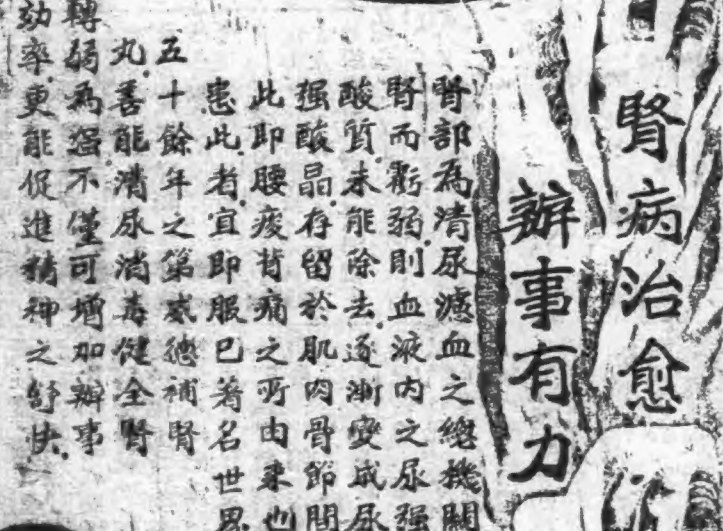 腎病治愈
辦事有力
腎部為清尿濾血之總機關
腎而虧弱則血液内之尿强
酸質未能除去逐漸變成尿
强酸晶存留於肌肉骨節間
此即腰痠背痛之所由來也
患此者宜即服已著名世界
五十餘年之第威德補腎
丸善能清尿消毒健全腎
轉弱為强不僅可增加辦事
効率更能促進精神之舒快